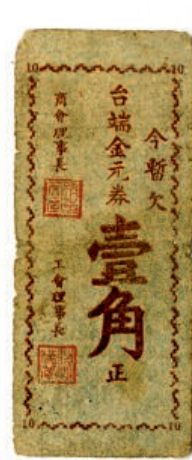 10 10
今暫欠
台端金元券
壹角正
商會理事長
工會理事長
10 10